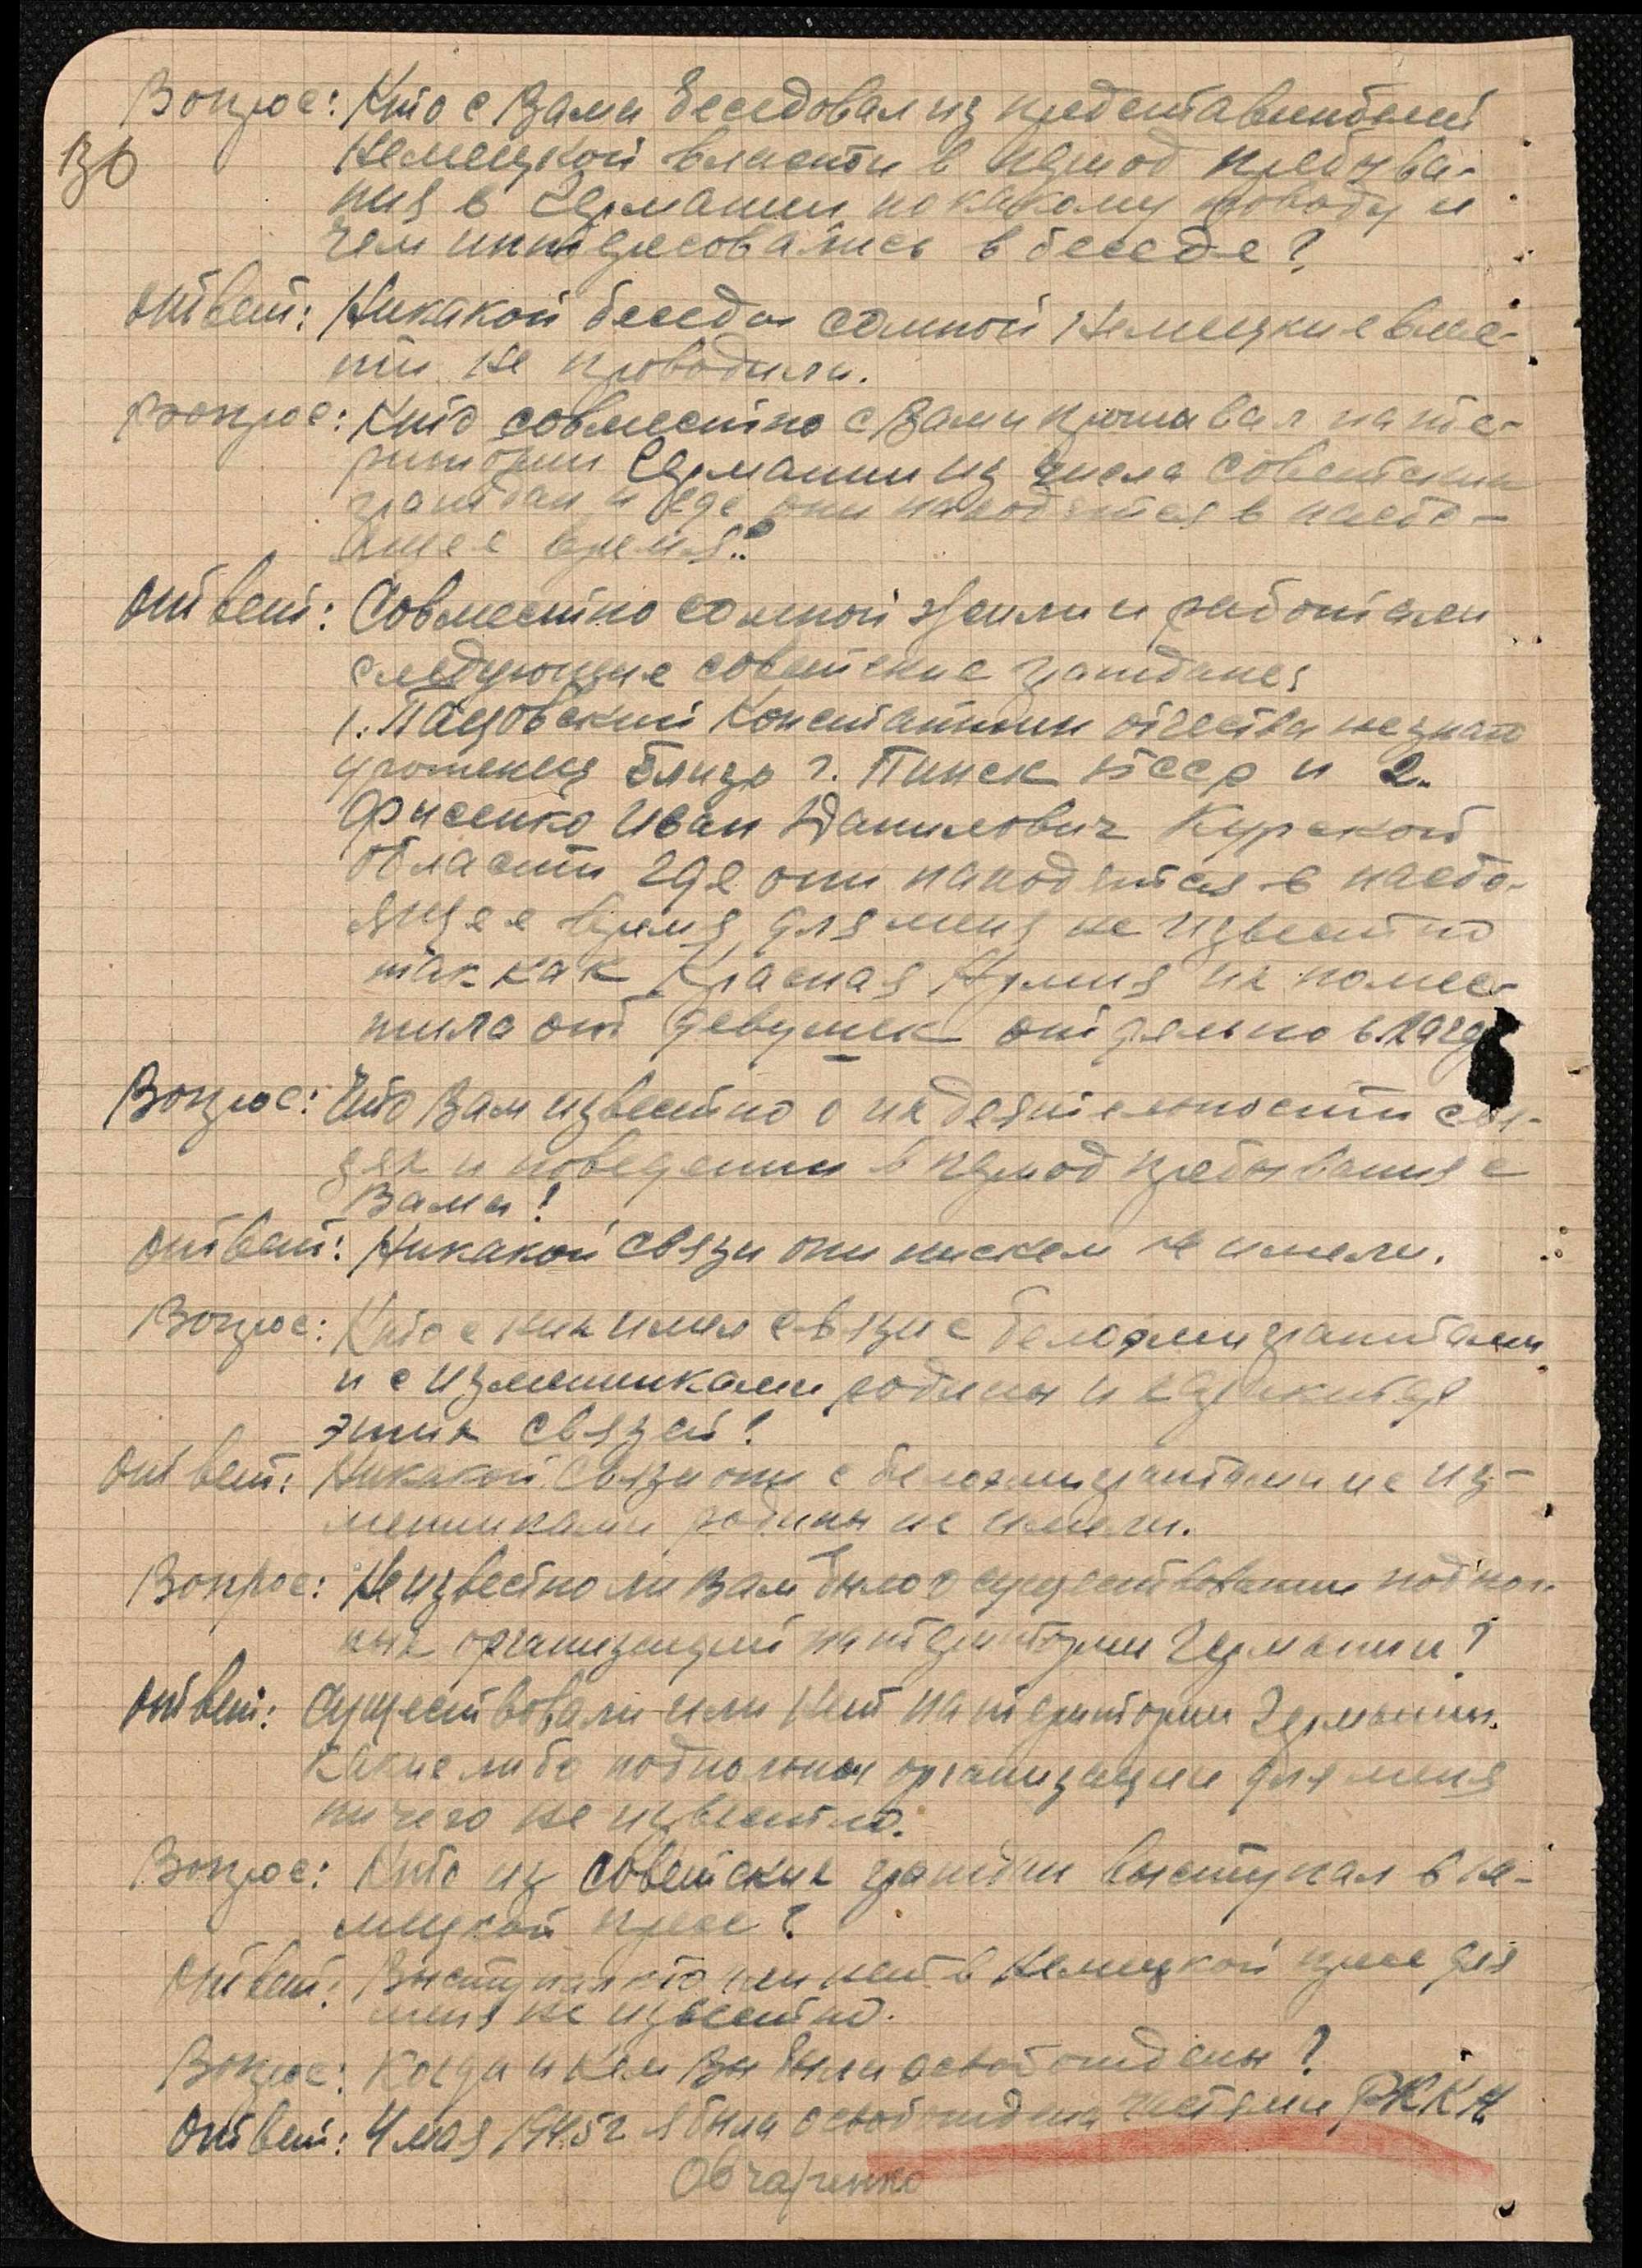 Вопрос: Кто с Вами беседовал из представителей
Во
Немецкой власти в период пребыва-
ния в Германии, по какому поводу и
чем интересовались в беседе?
Ответ: Никакой беседы сомной Немецкие влас-
ти не проводили.
Вопрос: Кто совместно с Вами проживал на те-
ритории Германии из числа советских
граждан и где они находятся в насто-
ящее время?
Ответ: Совместно сомной жили и работали
следующие советские граждане:
1. Пацовский Константин отчества не знаю
уроженец близь г. Пинск БССР и 2.
Фисенко Иван Данилович Курской
области где они находятся в насто-
ящее время для меня не известно
так как Красная Армия их помес-
тила от девушек отдельно в лагерь
Вопрос: Что Вам известно о их деятельности свя-
зях и поведении в период пребывания с
Вами?
Ответ: Никакой связи они нискем не имели.
Вопрос: Кто с них имел связи с белоэмигрантами
и с изменниками родины и характер
этих связей?
Ответ: Никакой связи они с белоэмигрантами и с из-
менниками родины не имели.
Вопрос: Не известно ли Вам было о существовании подполь-
ных организаций на територии Германии?
Ответ: Существовали или нет на територии Германии.
какие либо подпольные организации для меня
ничего не известно.
Вопрос: Кто из советских граждан выступал в не-
мецкой пресе?
Ответ: Выступал кто или нет в Немецкой пресе для
меня не известно.
Вопрос: Когда и кем Вы были освобождены?
Ответ: 4 мая 1945 г я была освобождена частями РККА
Овчаренко